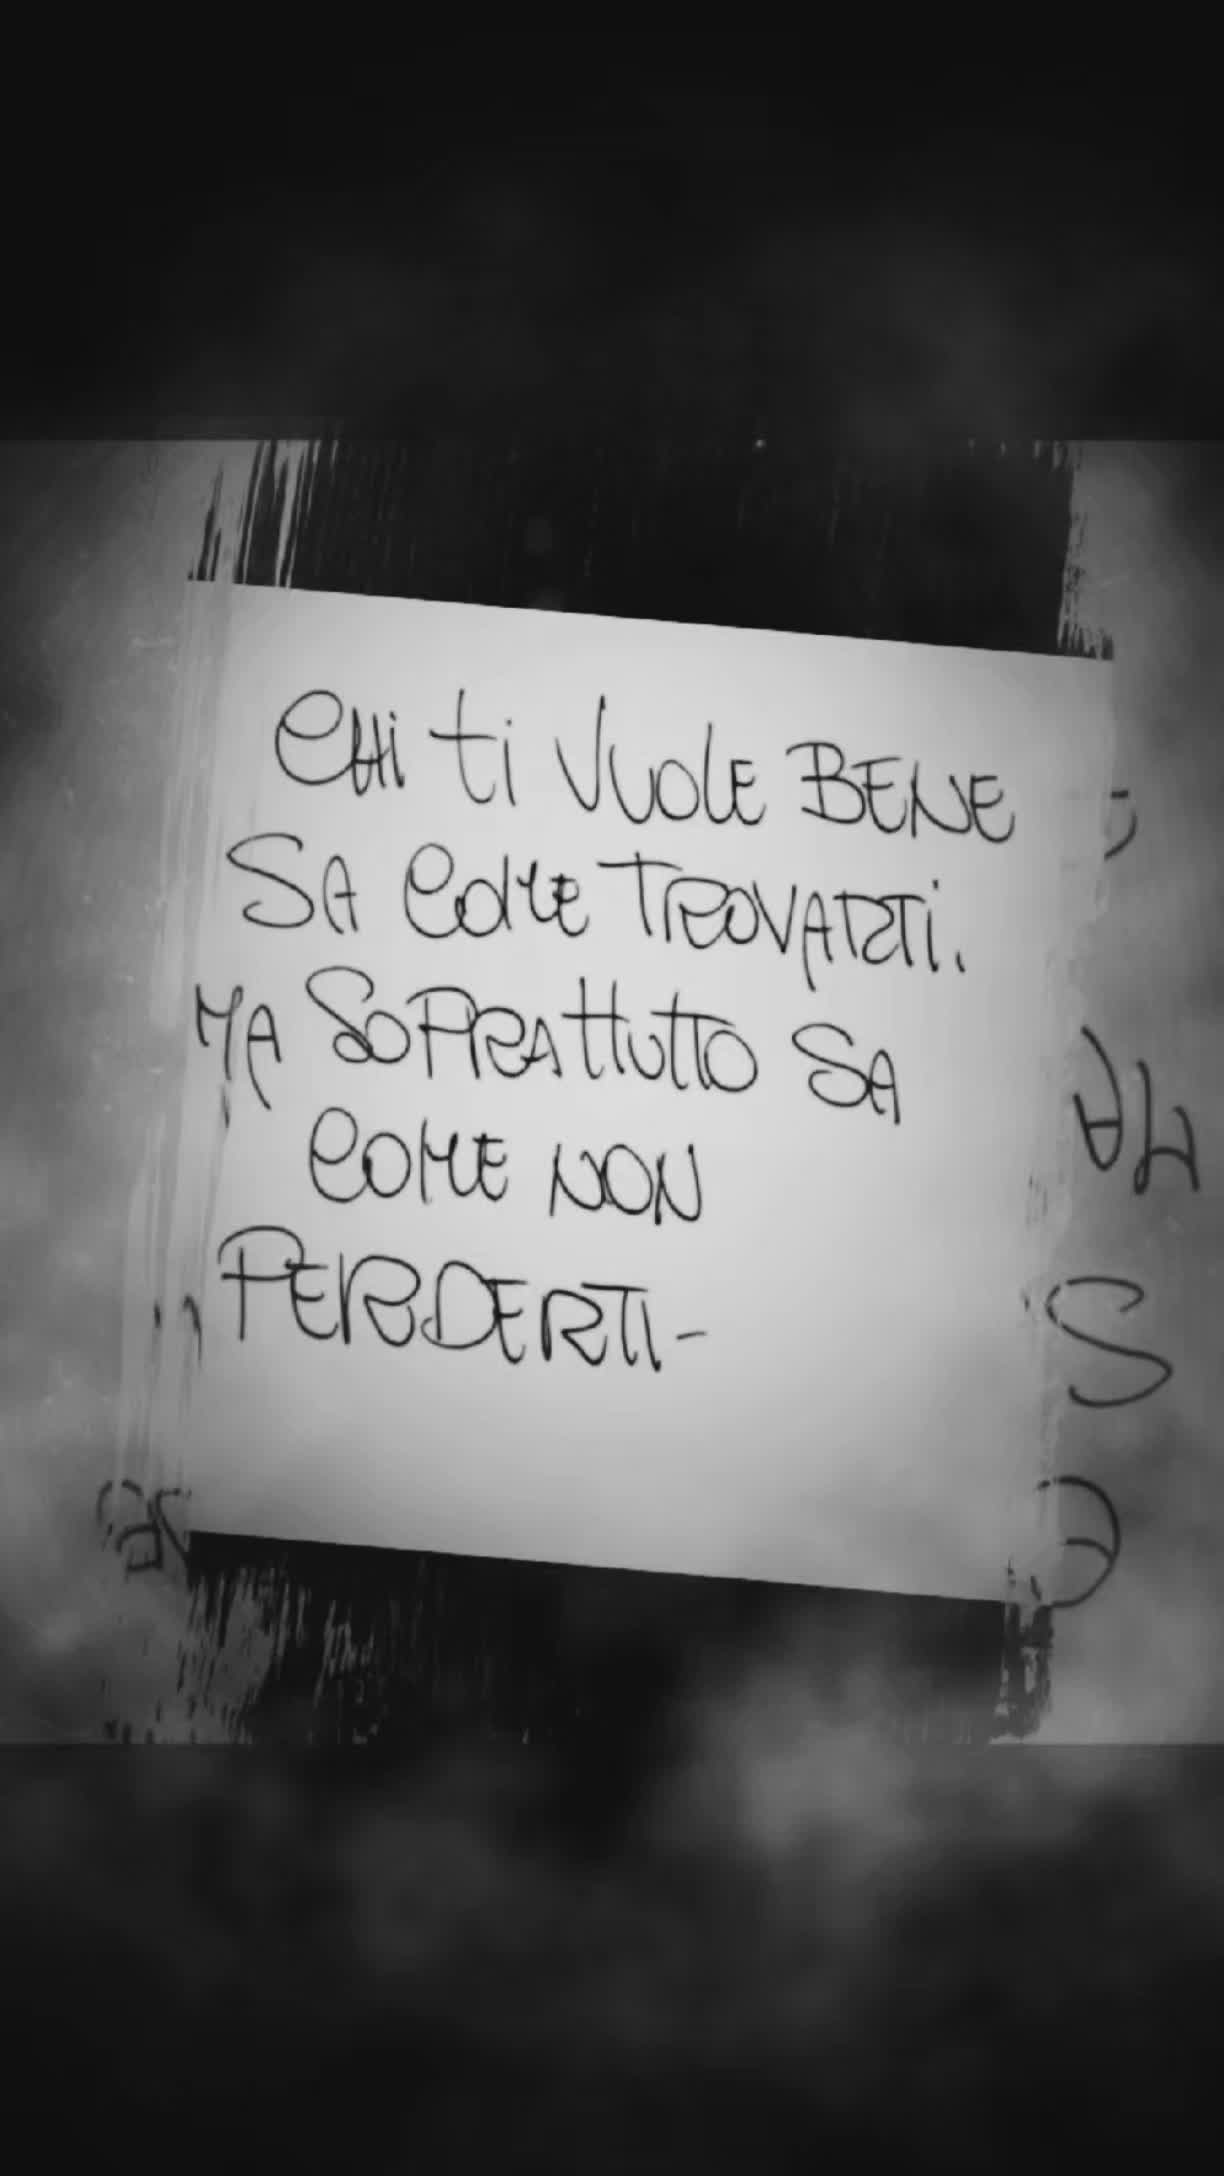 CHI ti VUOLE BENE
SA COME TROVARTI.
MA SOPRATTUTTO SA
COME NON
PERDERTI-